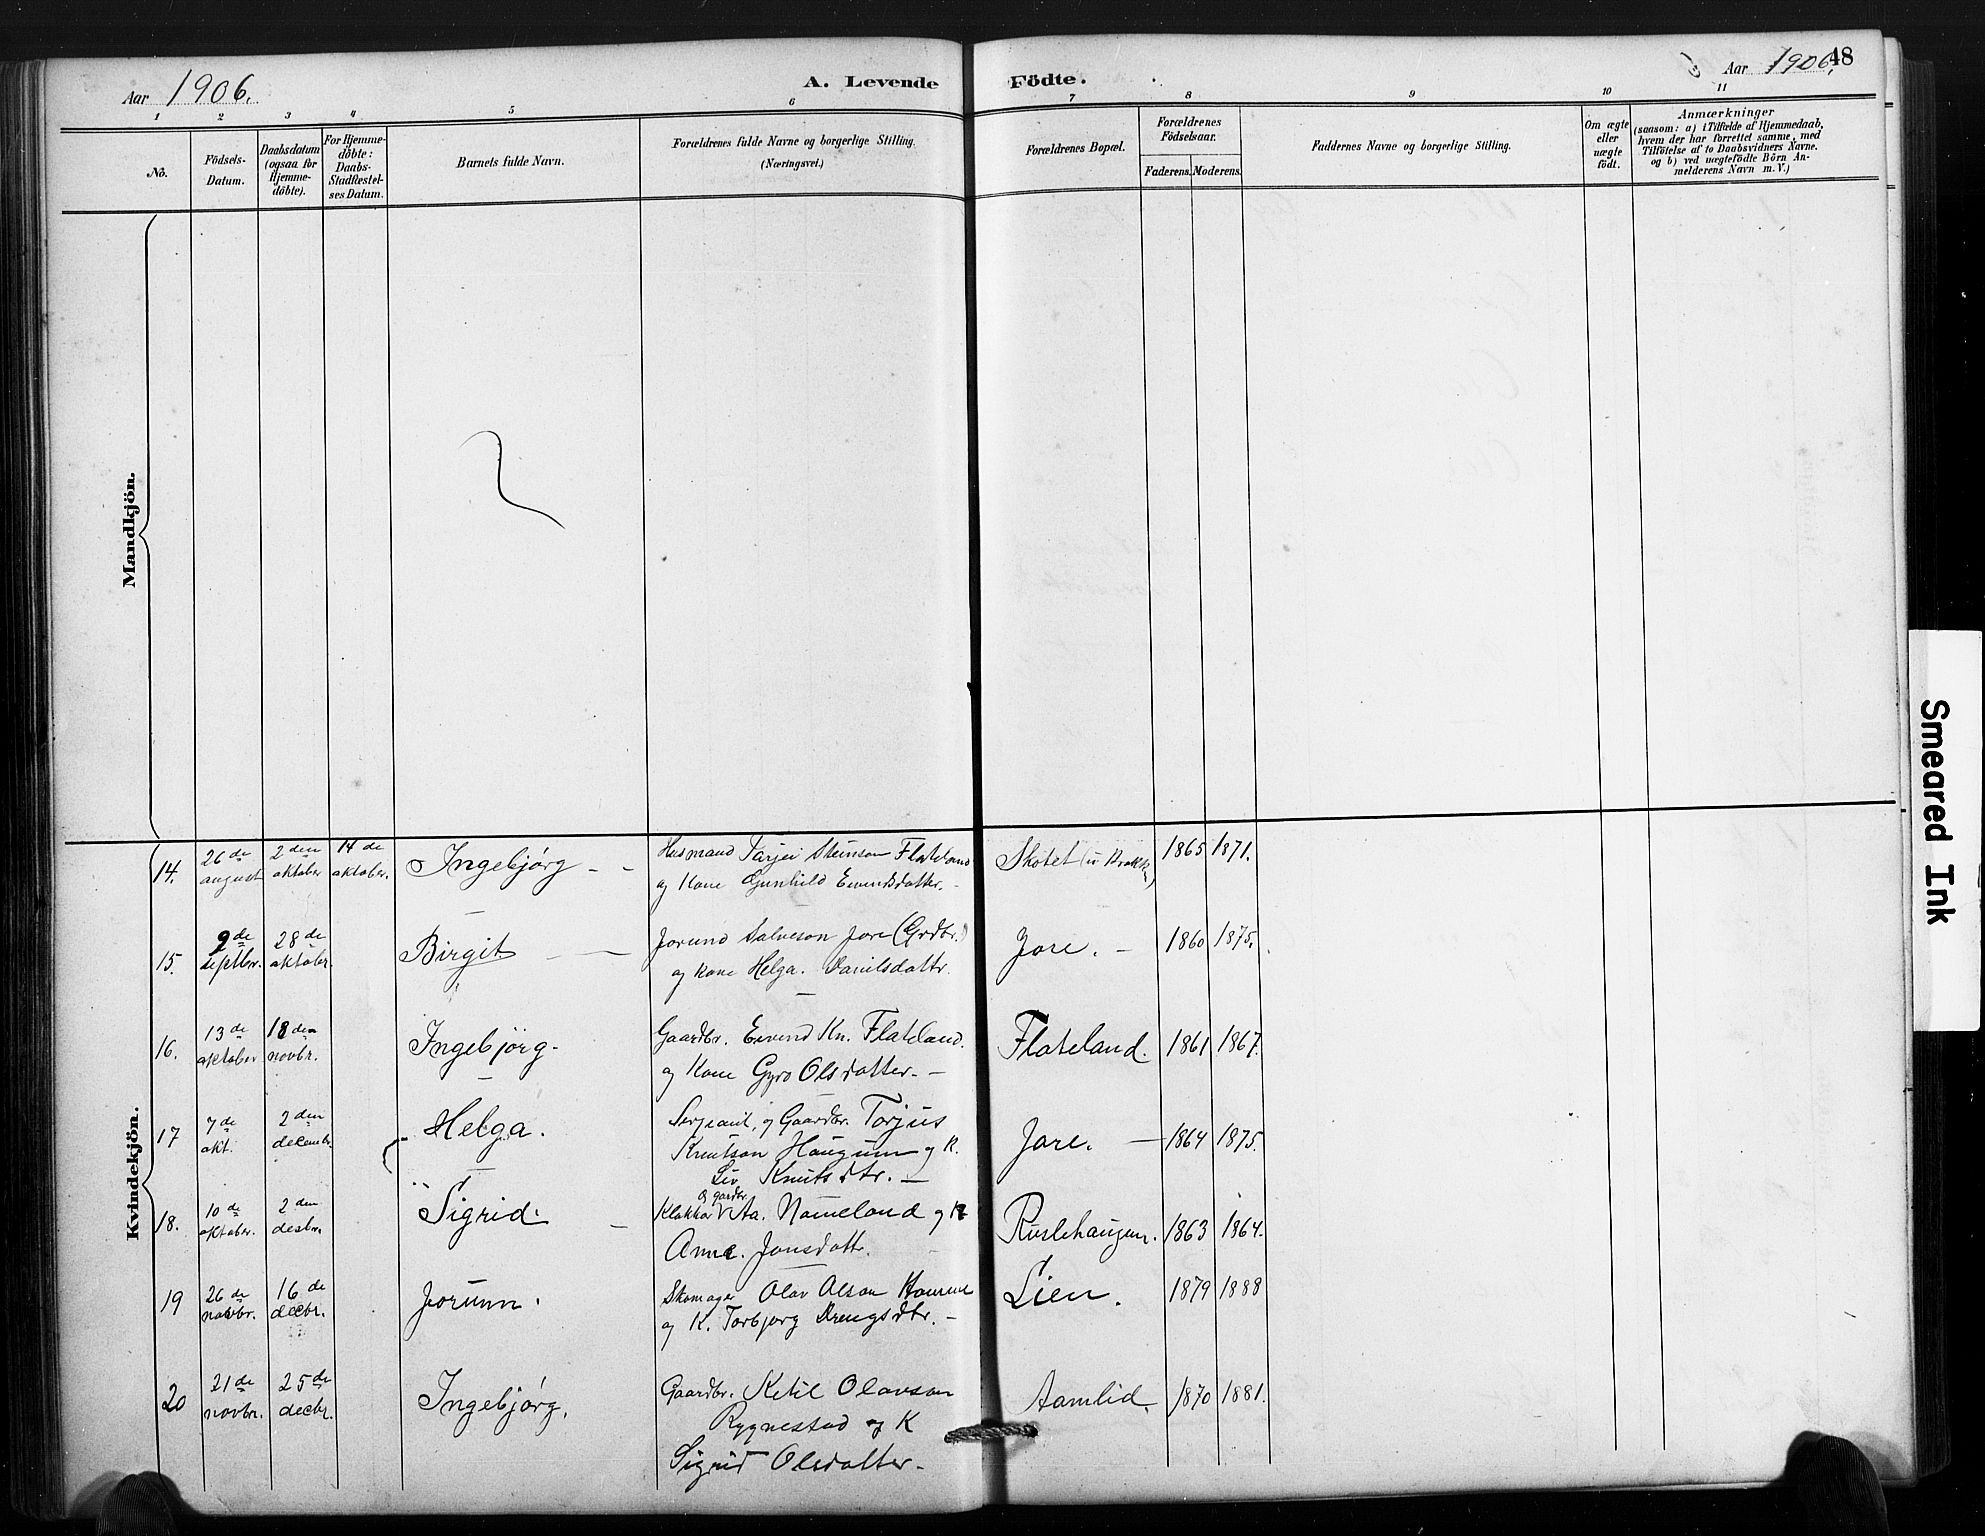 Aar 1906.
A. Levende
Födte.
Aar 1906,
48
1 2 3 4 5 6 7 8 9 10 11
No.
Födsels-
Datum.
Daabsdatum
(ogsaa for
Hjemme-
döbte).
For Hjemme-
döbte:
Daabs-
Stadfæstel-
ses Datum.
Barnets fulde Navn.
Forældrenes fulde Navne og borgerlige Stilling.
(Næringsvei.)
Forældrenes Bopæl.
Forældrenes
Födselsaar.
Faderens. Moderens.
Faddernes Navne og borgerlige Stilling.
Om ægte
eller
uægte
födt.
Anmærkninger
(saasom: a) i Tilfælde af Hjemmedaab,
hvem der har forrettet samme, med
Tilföielse af to Daabsvidners Navne.
og b) ved uægtefödte Börn An-
melderens Navn m. V.)
Mandkjön.
Kvindekjön.
14. 26de august 2den oktober 14de oktober. Ingebjørg - - Husmand Tarjei Steinson Flateland
og Kone Gunhild Eivindsdatter. - Skotet 1865 1871.
15. 9de septbr. 28de oktobr. Birgit - - Jorund Salveson Jore (Grdbr.)
og kone Helga. Danilsdattr. Jore. - 1860 1875.
16. 13de oktober 18den novbr. Ingebjörg- Gaardbr. Eivind Kn. Flateland.
og Kone Gyro Olsdatter. - Flateland. 1861 1867.
17 7de okt. 2den decembr. Helga. Sergeant, og Gaardbr. Torjus
Knutson Haugum og K.
Liv Knutsdtr. - Jore. - 1864 1875.
18. 10de oktober. 2den desbr. Sigrid. - og gardbr.
Klokkar Aa. Nomeland og K
Anne. Jonsdattr. 1863 1864.
19 26de novbr. 16de decbr. Jorunn. Skomager Olav Olson
og K. Torbjorg Drengsdtr. - Lien. 1879 1888
20 21de novbr. 25de decbr. Ingebjørg. Gaardbr. Ketil Olavson
Rygnestad og K
Sigrid Olsdatter- Aamlid. 1870 1881.
Smeared Ink